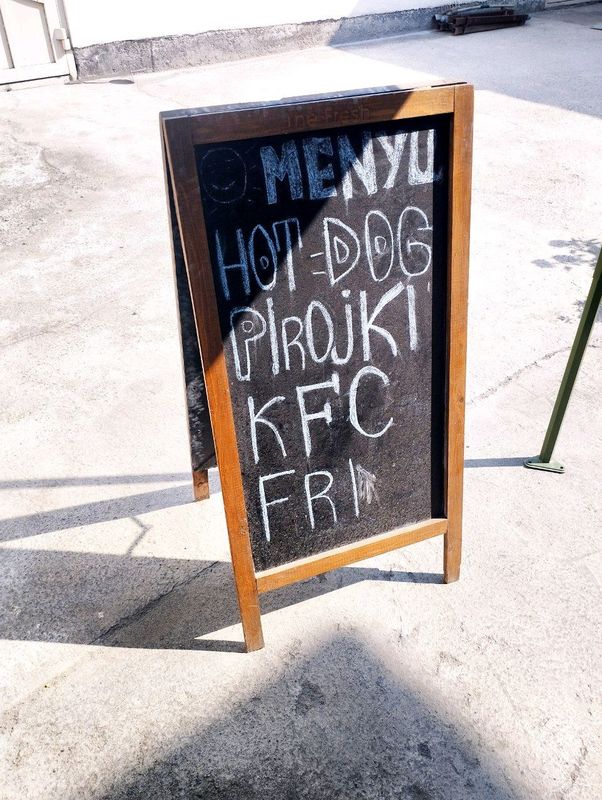 The Fresh
MENYU
HOT-DOG
PIROJKI
KFC
FRI